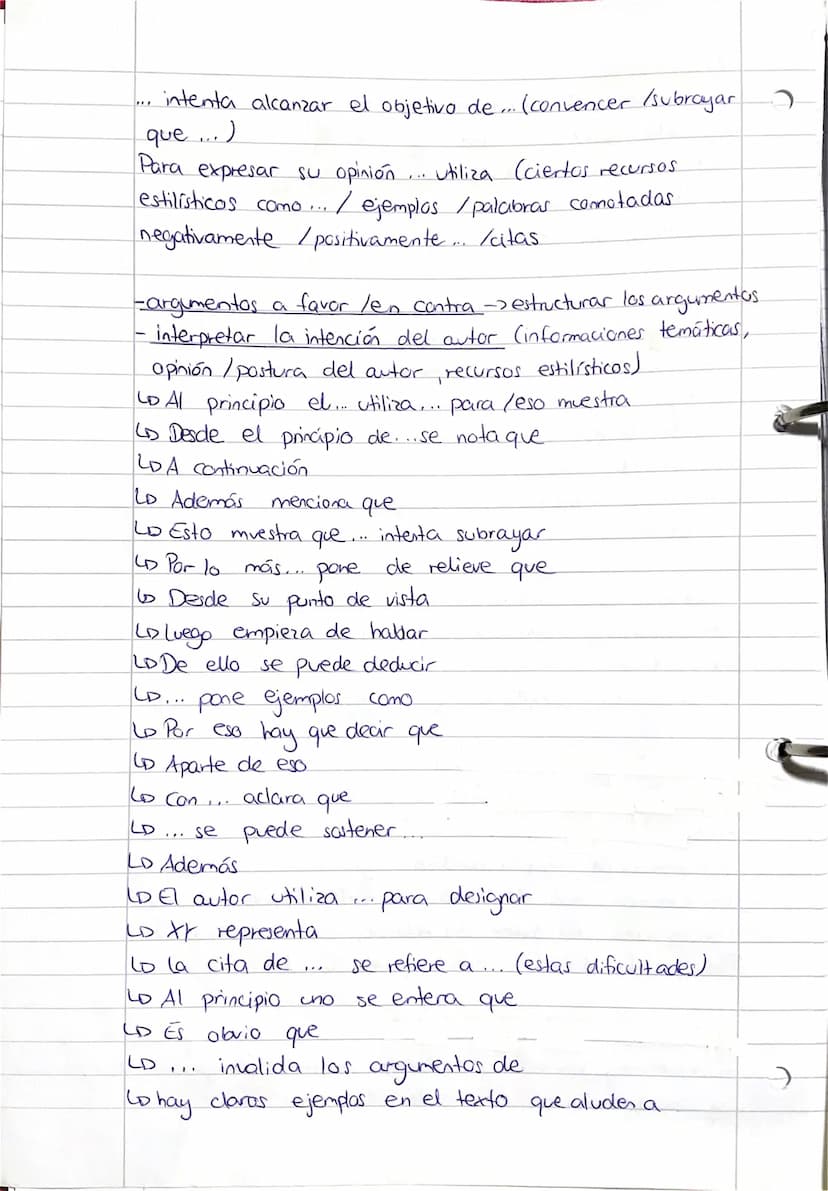 ... intenta alcanzar el objetivo de ... (convencer /subrayar
que ...)
Para expresar su opinión ... utiliza (ciertos recursos
estilísticos como ... / ejemplos /palabras connotadas
negativamente /positivamente ... /citas
-argumentos a favor /en contra -> estructurar los argumentos
- interpretar la intención del autor (informaciones temáticas,
opinión /postura del autor, recursos estilísticos)
↳ Al principio el ... utiliza ... para /eso muestra
↳ Desde el principio de ... se nota que
↳ A continuación
↳ Además menciona que
↳ Esto muestra que ... intenta subrayar
↳ Por lo más ... pone de relieve que
↳ Desde su punto de vista
↳ luego empieza de hablar
↳ De ello se puede deducir
↳ ... pone ejemplos como
↳ Por eso hay que decir que
↳ Aparte de eso
↳ Con ... aclara que
↳ ... se puede sostener ...
↳ Además
↳ El autor utiliza ... para designar
↳ XY representa
↳ la cita de ... se refiere a ... (estas dificultades)
↳ Al principio uno se entera que
↳ Es obvio que
↳ ... invalida los argumentos de
↳ hay claros ejemplos en el texto que aluden a